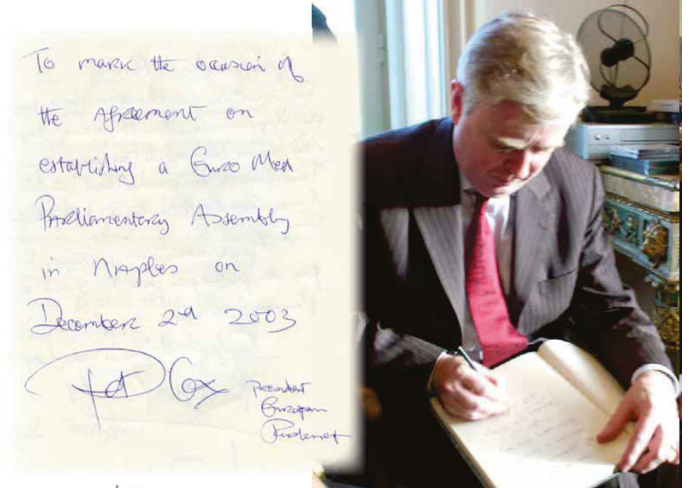 To mark the occasion of
the Agreement on
establishing a Euro Med
Parliamentary Assembly
in Naples on
December 2nd 2003
Pat Cox
President
European
Parliament